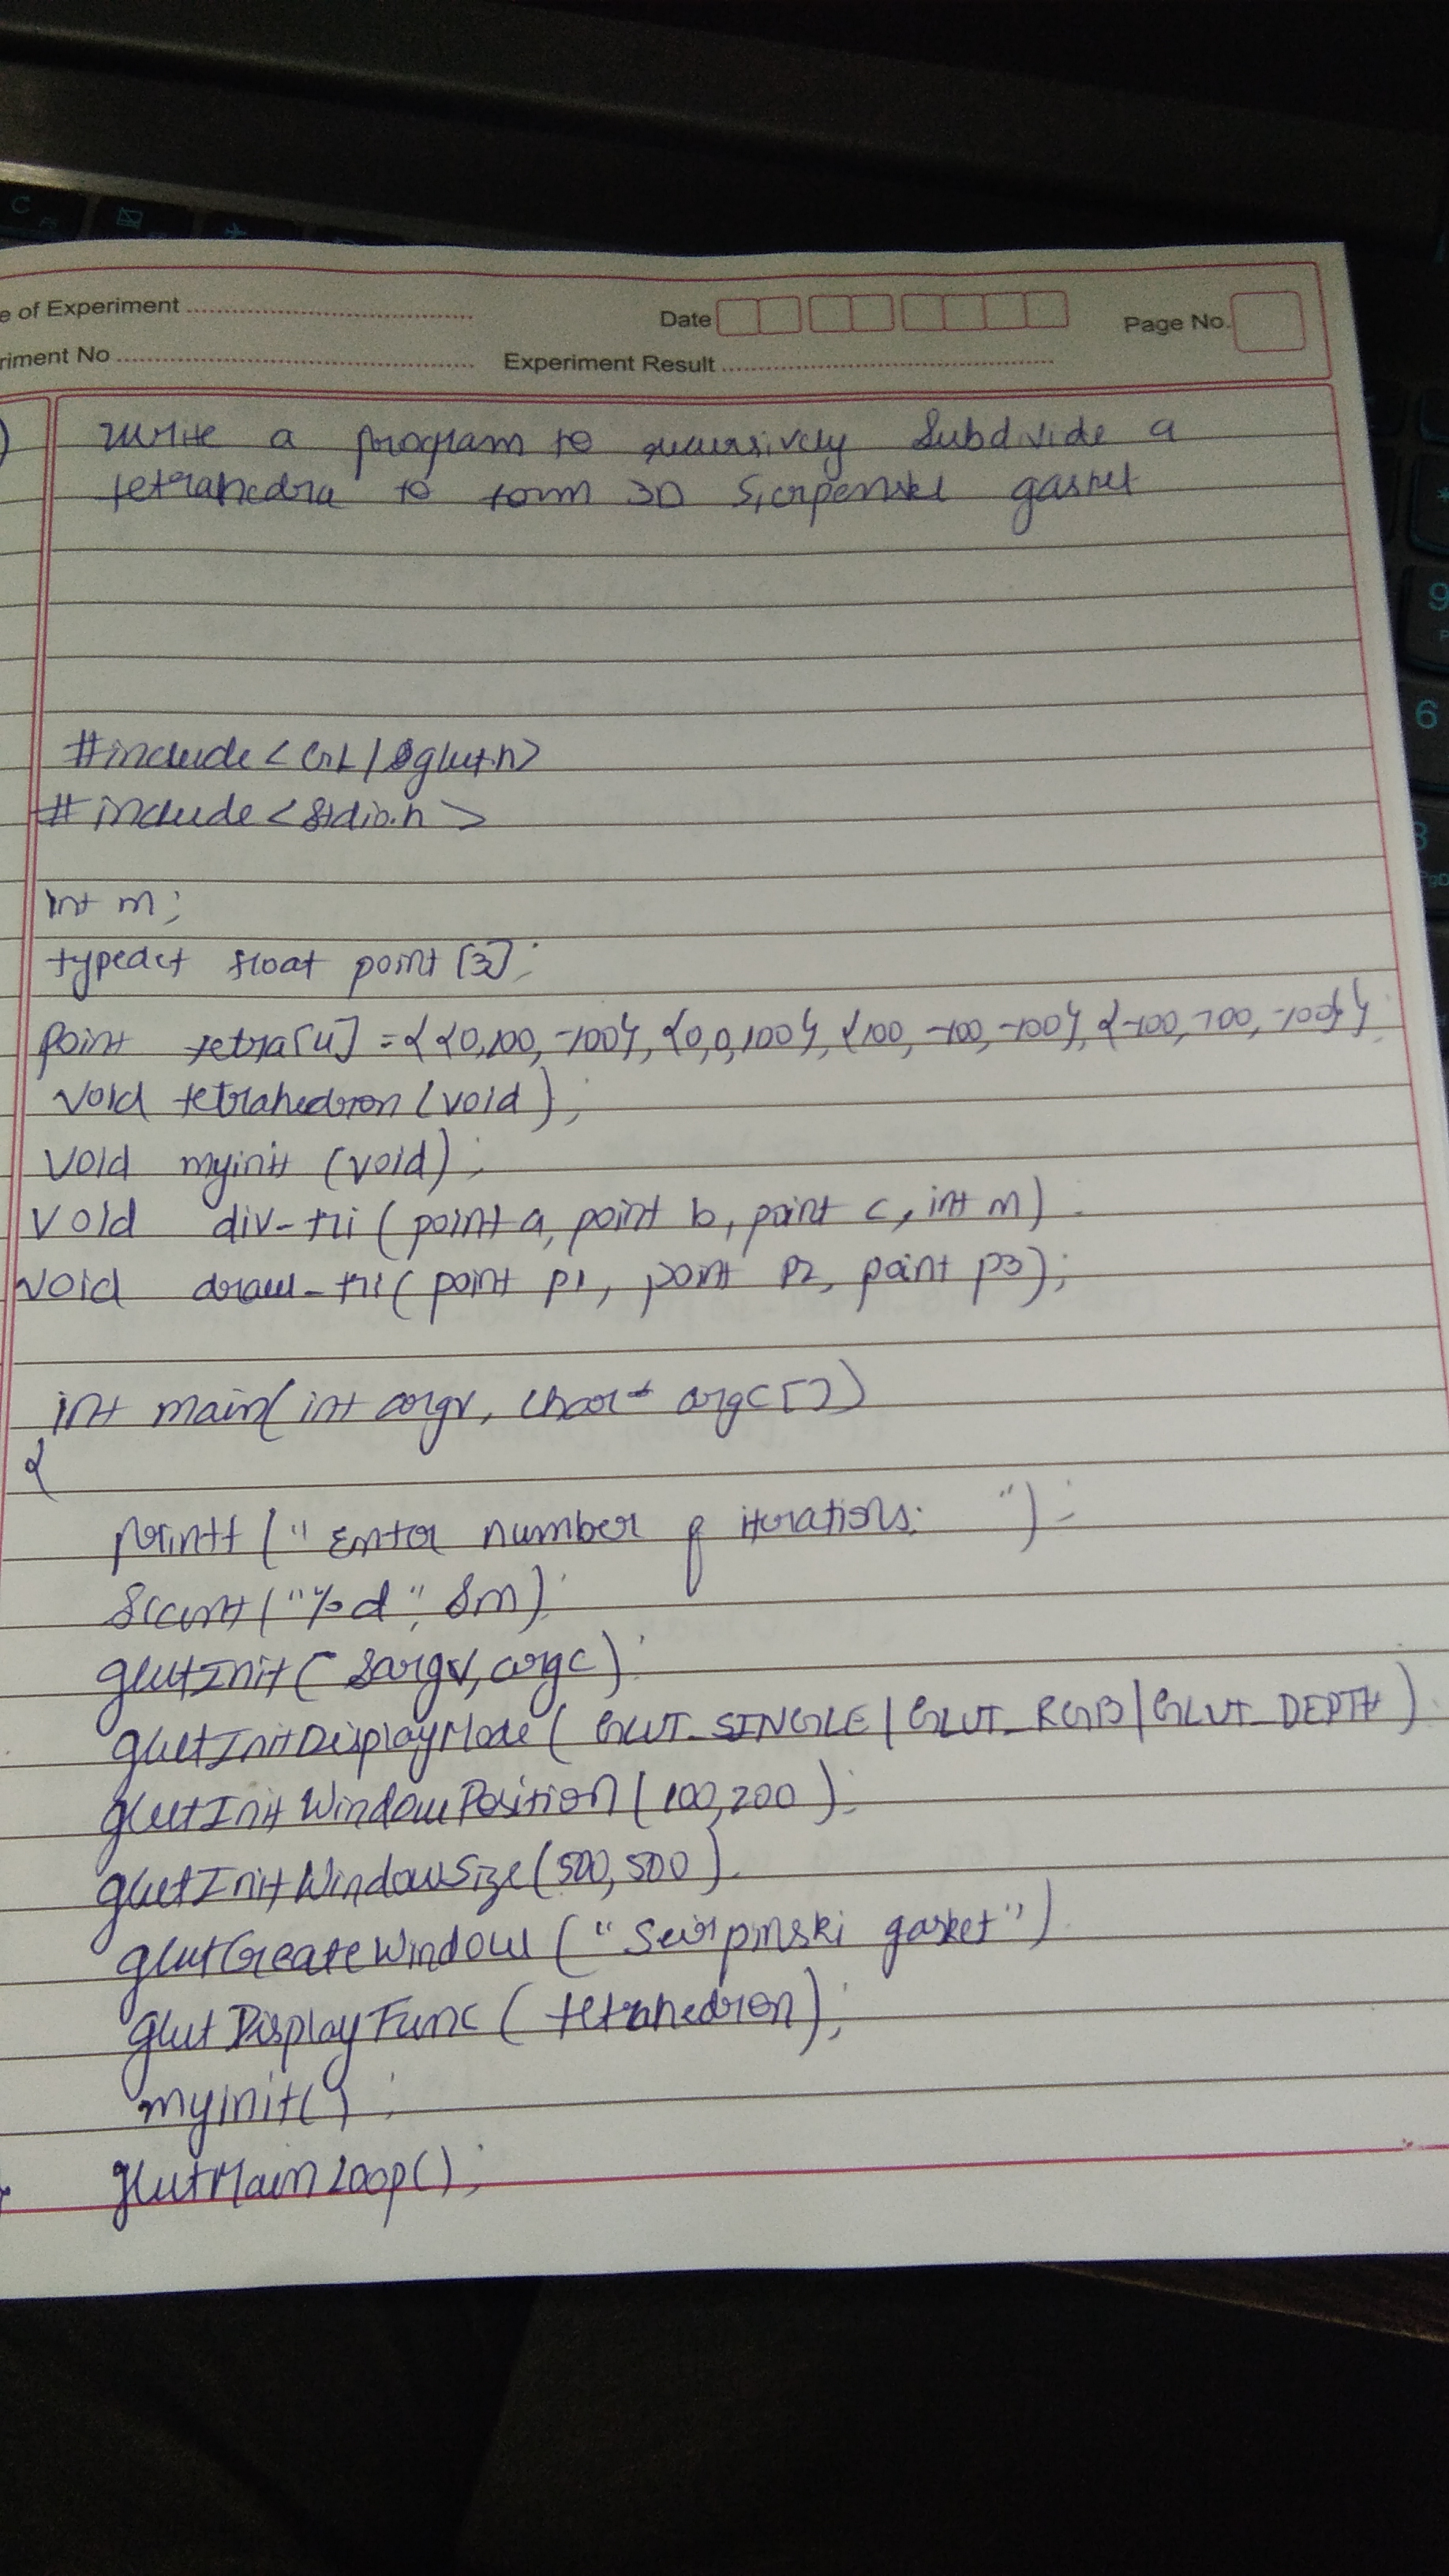 e of Experiment
Date
Page No.
riment No
Experiment Result
) Write a program to recursively Subdivide a
tetrahedra to form 3D Sierpenski gasket
#include<GL/glut.h>
#include<stdio.h>
int m;
typedef float point[3];
point tetra[4] = {{0,100,-100}, {0,0,100}, {100,-100,-100}, {-100,-100,-100}};
void tetrahedron(void);
void myinit (void);
void div-tri (point a, point b, point c, int m).
void draw-tri (point p1, point p2, point p3);
int main(int argv, char* argc[])
{
printf ("Enter number of iterations: ");
scanf("%d", &m);
glutInit( &argv, argc);
glutInitDisplayMode( GLUT_SINGLE|GLUT_RGB|GLUT_DEPTH)
glutInitWindowPosition(100,200);
glutInitWindowSize(500,500)
glutCreateWindow("Seirpinski gasket")
glutDisplayFunc( tetrahedron);
myinit();
glutMainLoop();
C
9
6